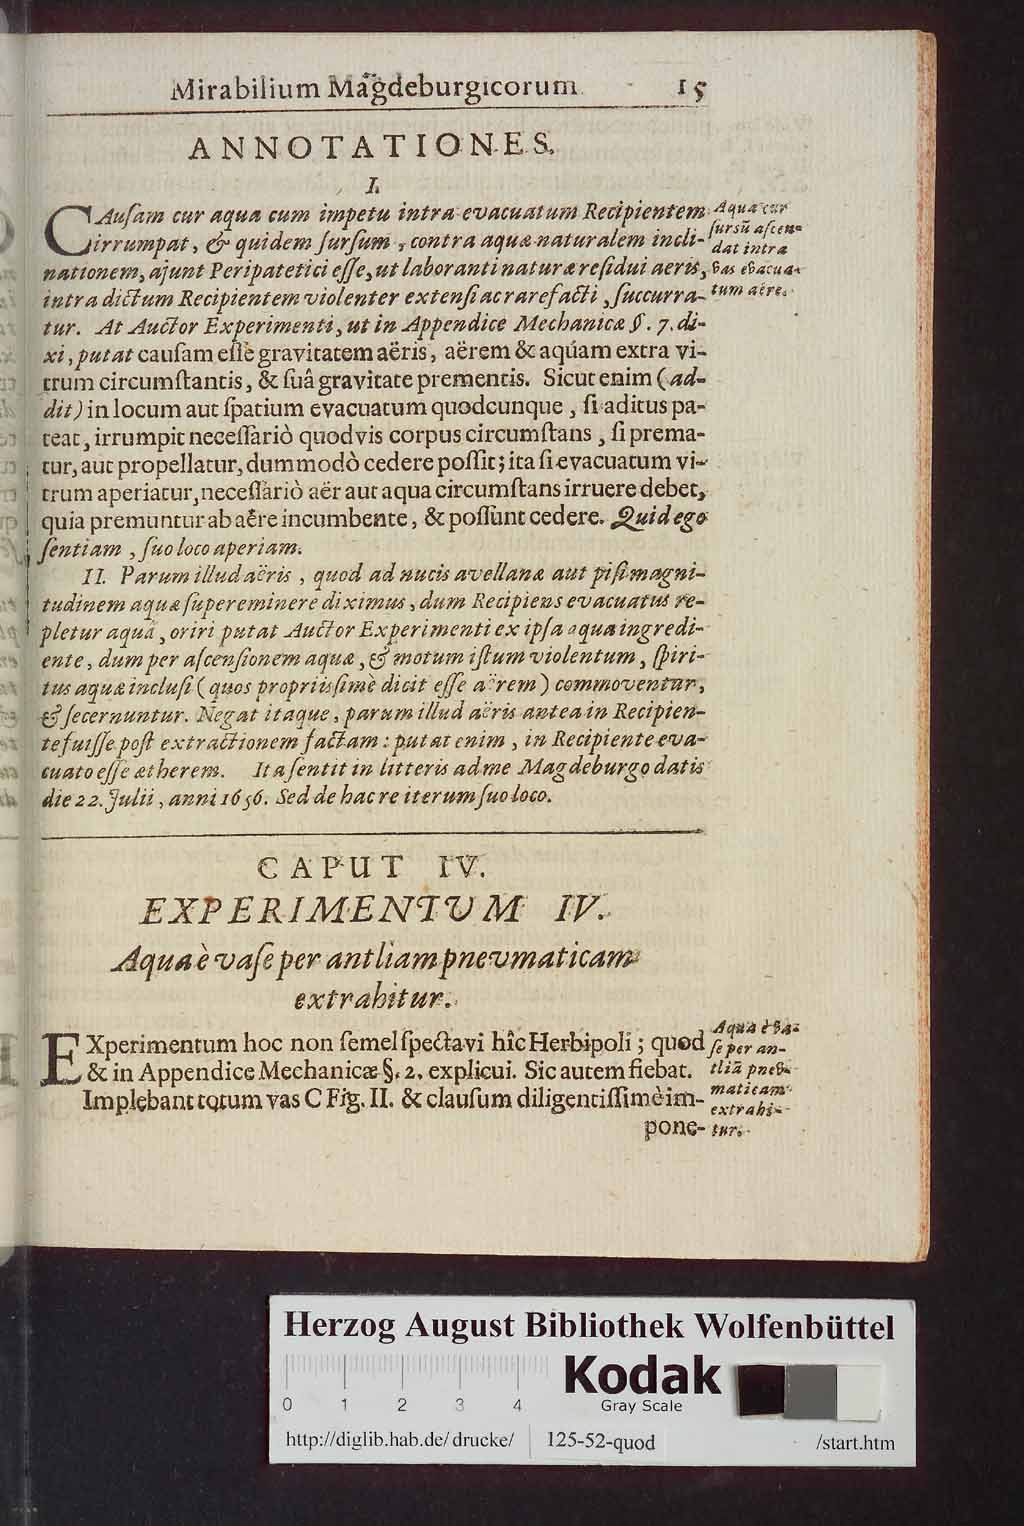 Mirabilium Magdeburgicorum. 15
ANNOTATIONES.
I.
CAuſam cur aqua cum impetu intra evacuatum Recipientem
irrumpat, & quidem ſurſum, contra aquæ naturalem incli-
nationem, ajunt Peripatetici eſſe, ut laboranti naturæ reſidui aeris,
intra dictum Recipientem violenter extenſi ac rarefacti, ſuccurra-
tur. At Auctor Experimenti, ut in Appendice Mechanicæ §. 7. di-
xi, putat cauſam eſſe gravitatem aëris, aërem & aquam extra vi-
trum circumſtantis, & ſuâ gravitate prementis. Sicut enim (ad-
dit) in locum aut ſpatium evacuatum quodcunque, ſi aditus pa-
teat, irrumpit neceſſariò quodvis corpus circumſtans, ſi prema-
tur, aut propellatur, dummodò cedere poſſit; ita ſi evacuatum vi-
trum aperiatur, neceſſariò aër aut aqua circumſtans irruere debet,
quia premuntur ab aëre incumbente, & poſſunt cedere. Quid ego
ſentiam, ſuo loco aperiam.
II. Parum illud aëris, quod ad nucis avellanæ aut piſi magni-
tudinem aquæ ſupereminere diximus, dum Recipiens evacuatus re-
pletur aquâ, oriri putat Auctor Experimenti ex ipſa aqua ingredi-
ente, dum per aſcenſionem aquæ, & motum iſtum violentum, ſpiri-
tus aquæ incluſi (quos propriiſſimè dicit eſſe aërem) commoventur,
& ſecernuntur. Negat itaque, parum illud aëris antea in Recipien-
te fuiſſe poſt extractionem factam: putat enim, in Recipiente eva-
cuato eſſe ætherem. Ita ſentit in litteris ad me Magdeburgo datis
die 22. Julii, anni 1656. Sed de hac re iterum ſuo loco.
Aqua cur
ſursũ aſcen-
dat intra
vas evacua-
tum aëre.
CAPUT IV.
EXPERIMENTUM IV.
Aqua è vaſe per antliam pnevmaticam
extrahitur.
EXperimentum hoc non ſemel ſpectavi hîc Herbipoli; quod
& in Appendice Mechanicæ §. 2. explicui. Sic autem fiebat.
Implebant totum vas C Fig. II. & clauſum diligentiſſimè im-
pone-
Aqua è va-
ſe per an-
tliã pnev-
maticam
extrahi-
tur.
Herzog August Bibliothek Wolfenbüttel
0 1 2 3 4
Kodak
Gray Scale
http://diglib.hab.de/drucke/ 125-52-quod /start.htm